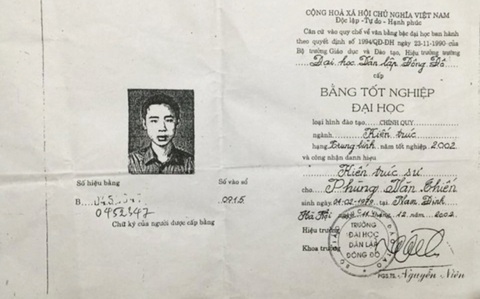 Số hiệu bằng
Số vào sổ
B
0452347
0915
Chữ ký của người được cấp bằng
CỘNG HOÀ XÃ HỘI CHỦ NGHĨA VIỆT NAM
Độc lập - Tự do - Hạnh phúc
Căn cứ vào quy chế về văn bằng bậc đại học ban hành
theo quyết định số 1994/QĐ-ĐH ngày 23-11-1990 của
Bộ trưởng Giáo dục và Đào tạo, Hiệu trưởng trường
Đại học Dân lập Đông Đô
cấp
BẰNG TỐT NGHIỆP
ĐẠI HỌC
loại hình đào tạo CHÍNH QUY
ngành Kiến trúc
hạng Trung bình năm tốt nghiệp 2002
và công nhận danh hiệu
Kiến trúc sư
cho Phùng Văn Thiên
sinh ngày 04-02-1979 tại Nam Định
Hà Nội ngày 11 tháng 12 năm 2002
Hiệu trưởng
Khoa trưởng
TRƯỜNG
ĐẠI HỌC
DÂN LẬP
ĐÔNG ĐÔ
PGS.TS. Nguyễn Niên